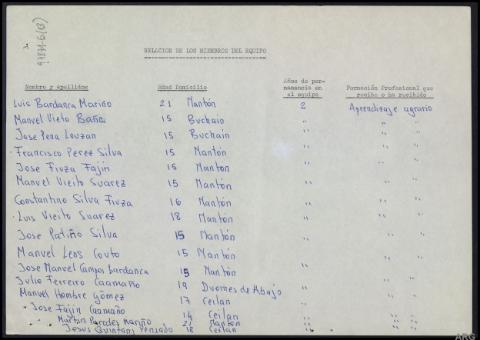 RELACION DE LOS MIEMBROS DEL EQUIPO
Nombre y Apellidos Edad Domicilio Años de permanencia en el equipo Formación Profesional que recibe o ha recibido
Luis Bardanca Mariño 21 Mantón 2 Aprendizaje agrario
Manuel Vieto Baña 15 Buchain " " "
Jose Pena Louzan 15 Buchain " " "
Francisco Perez Silva 15 Mantón " " "
Jose Fiuza Fajin 15 Mantón " " "
Manuel Vieito Suarez 15 Mantón " " "
Constantino Silva Fiuza 16 Mantón " " "
Luis Vieito Suarez 18 Mantón " " "
Jose Patiño Silva 15 Mantón " " "
Manuel Leos Couto 15 Mantón " " "
Jose Manuel Campos Bardanca 15 Mantón " " "
Julio Ferreiro Caamaño 19 Duomes de Abajo " " "
Manuel Hombre Gómez 17 Ceilan " " "
Jose Fajin Caamaño 14 Ceilan " " "
Martin Paredes Mariño 21 Mantón " " "
Jesus Quintans Pensado 18 Ceilan " " "
ARG